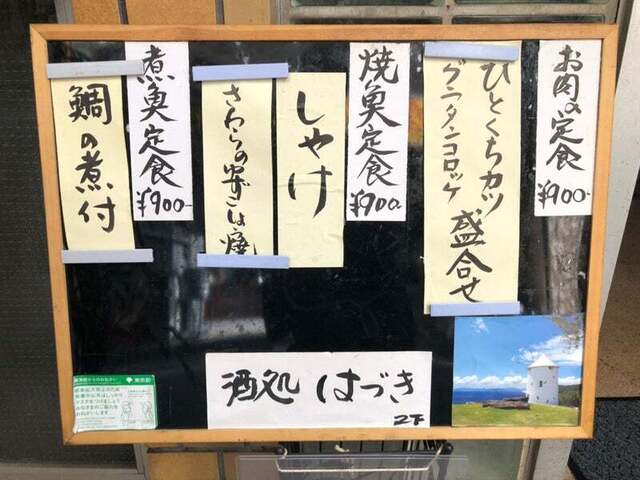 お肉の定食
¥900-
ひとくちカツ
グラタンコロッケ
盛合せ
焼魚定食
¥900-
しゃけ
さわらの柚こしょう焼
煮魚定食
¥900-
鯛の煮付
酒処 はづき
2F
東京都